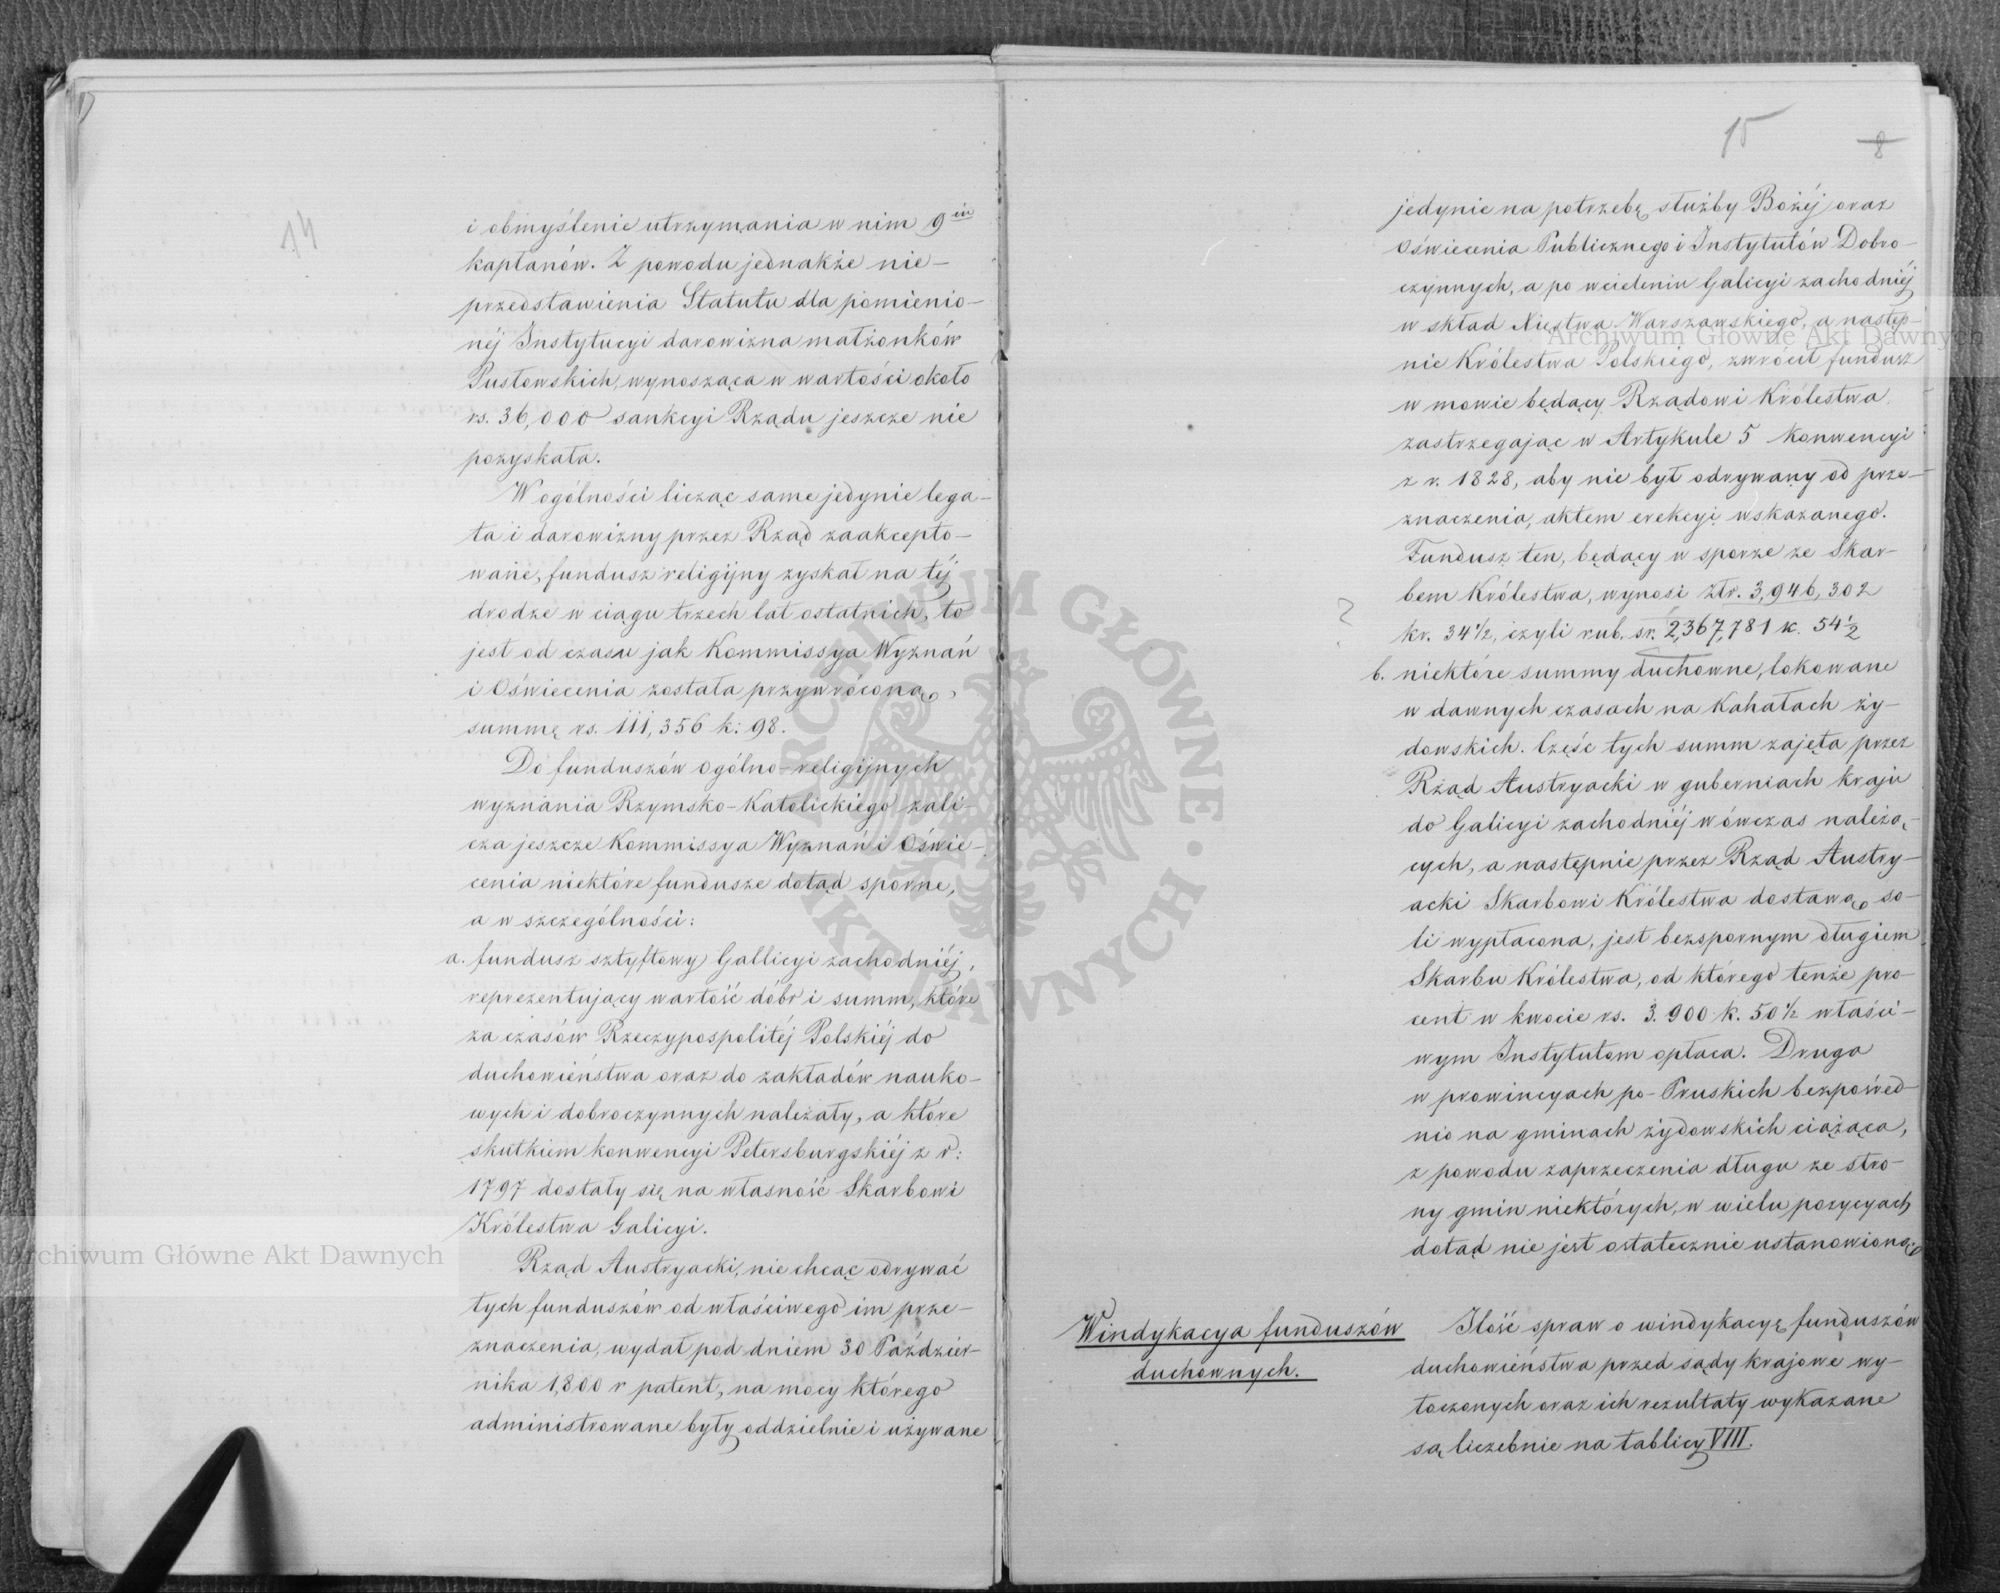 14
i obmyślenie utrzymania w nim 9iu
kapłanów. Z powodu jednakże nie-
przedstawienia Statutu dla pomienio-
néj Instytucyi darowizna małżonków
Pusłowskich, wynosząca w wartości około
rs. 36,000 sankcyi Rządu jeszcze nie
pozyskała.
W ogólności licząc same jedynie lega-
ta i darowizny przez Rząd zaakcepto-
wane, fundusz religijny zyskał na téj
drodze w ciągu trzech lat ostatnich, to
jest od czasu jak Kommissya Wyznań
i Oświecenia została przywróconą,
summę rs. 111,356 k: 98.
Do funduszów ogólno-religijnych
wyznania Rzymsko-Katolickiego zali-
cza jeszcze Kommissya Wyznań i Oświe-
cenia niektóre fundusze dotąd sporne,
a w szczególności:
a. fundusz sztyftowy Gallicyi zachodniéj,
reprezentujący wartość dóbr i summ, które
za czasów Rzeczypospolitéj Polskiéj do
duchowieństwa oraz do zakładów nauko-
wych i dobroczynnych należały, a które
skutkiem konwencyi Petersburgskiéj z r:
1797 dostały się na własność Skarbowi
Królestwa Galicyi.
Rząd Austryacki, nie chcąc odrywać
tych funduszów od właściwego im prze-
znaczenia, wydał pod dniem 30 Paździer-
nika 1,800 r patent, na mocy którego
administrowane były oddzielnie i używane
15
8
jedynie na potrzebę służby Bożéj oraz
Oświecenia Publicznego i Instytutów Dobro-
czynnych, a po wcieleniu Galicyi zachodniéj
w skład Xięstwa Warszawskiego, a następ-
nie Królestwa Polskiego, zwrócił fundusz
w mowie będący Rządowi Królestwa
zastrzegając w Artykule 5 Konwencyi
z r. 1828, aby nie był odrywany od prze-
znaczenia, aktem erekcyi wskazanego.
Fundusz ten, będący w sporze ze Skar-
bem Królestwa, wynosi złr. 3,946,302
? kr. 34½, czyli rub. sr. 2,367,781 k. 54½
b. niektóre summy duchowne, lokowane
w dawnych czasach na Kahałach ży-
dowskich. Część tych summ zajęta przez
Rząd Austryacki w guberniach kraju
do Galicyi zachodniéj wówczas należą-
cych, a następnie przez Rząd Austry-
acki Skarbowi Królestwa dostawą so-
li wypłacona, jest bezspornym długiem
Skarbu Królestwa, od którego tenże pro-
cent w kwocie rs. 3.900 k. 50½ właści-
wym Instytutom opłaca. Druga
w prowincyach po-Pruskich bezpośred-
nio na gminach żydowskich ciążąca,
z powodu zaprzeczenia długu ze stro-
ny gmin niektórych, w wielu pozycyach
dotąd nie jest ostatecznie ustanowioną.
Windykacya funduszów
duchownych.
Ilość spraw o windykacyę funduszów
duchowieństwa przed sądy krajowe wy-
toczonych oraz ich rezultaty wykazane
są liczebnie na tablicy VIII.
Archiwum Główne Akt Dawnych
Archiwum Główne Akt Dawnych
ARCHIWUM GŁÓWNE AKT DAWNYCH